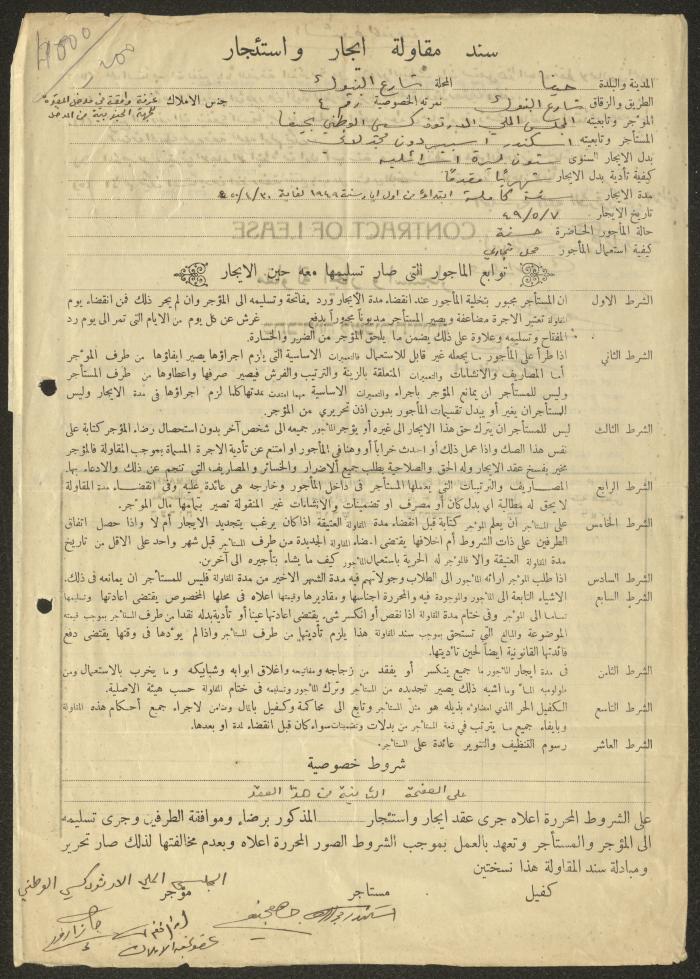 4000
200
سند مقاولة ايجار واستئجار
المدينة والبلدة حيفا المحلة شارع البنوك
الطريق والزقاق شارع البنوك نمرته الخصوصية رقم ٤ جنس الاملاك غرفة واقعة في
المؤجر وتابعيته المجلس الملي الارثوذكسي الوطني بحيفا
المستأجر وتابعيته اسكندر
بدل الايجار السنوى ستون ليرة اسرائيلية
كيفية تأدية بدل الايجار شهريا مقدما
مدة الايجار سنة كاملة ابتداء من اول ايار سنة ١٩٤٩ لغاية ٥٠/٤/٣٠
تاريخ الايجار ٤٩/٥/٧
حالة المأجور الحاضرة حسنة
CONTRACT OF LEASE
كيفية استعمال المأجور محل تجاري
توابع المأجور التى صار تسليمها معه حين الايجار
الشرط الاول ان المستأجر مجبور بتخلية المأجور عند انقضاء مدة الايجار ورد مفاتحة وتسليمه الى المؤجر وان لم يحر ذلك فمن انقضاء يوم
المقاولة تعتبر الاجرة مضاعفة ويصير المستأجر مديوناً مجبوراً بدفع غرش عن كل يوم من الايام التى تمر الى يوم رد
المفتاح وتسليمه وعلاوة على ذلك يضمن ما يلحق المؤجر من الضرر والخسارة.
الشرط الثاني اذا طرأ على المأجور ما يجعله غير قابل للاستعمال فالتعميرات الاساسية التى يلزم اجراؤها يصير ايفاؤها من طرف المؤجر
أما المصاريف والانشاءات والتعميرات المتعلقة بالزينة والترتيب والفرش فيصير صرفها واعطاؤها من طرف المستأجر
وليس للمستأجر ان يمانع المؤجر باجراء والتعميرات الاساسية مهما امتدت مدتها كلما لزم اجراؤها فى مدة الايجار وليس
المستأجر ان يغير أو يبدل تقسيمات المأجور بدون اذن تحريري من المؤجر.
الشرط الثالث ليس للمستأجر ان يترك حق هذا الايجار الى غيره أو يؤجر المأجور جميعه الى شخص آخر بدون استحصال رضاء المؤجر كتابة على
نفس هذا الصك واذا عمل ذلك أو احدث خراباً أو وهنا في المأجور او امتنع عن تأدية الاجرة المسماة بموجب المقاولة فالمؤجر
مخير بفسخ عقد الايجار وله الحق والصلاحية بطلب جميع الاضرار والخسائر والمصاريف التى تنجم عن ذلك والادعاء بها.
الشرط الرابع المصاريف والترتيبات التى يعملها المستأجر فى داخل المأجور وخارجه هى عائدة عليه وفى انقضاء مدة المقاولة
لا يحق له مطالبة اي بدل كان أو مصرف او تضمينات والانشاءات غير المنقولة تصير بتمامها مال المؤجر.
الشرط الخامس على المستأجر ان يعلم المؤجر كتابة قبل انقضاء مدة المقاولة العتيقة اذا كان يرغب بتجديد الايجار أم لا واذا حصل اتفاق
الطرفين على ذات الشروط أم اخلافها يقتضى امضاء المقاولة الجديدة من طرف المستأجر قبل شهر واحد على الاقل من تاريخ
مدة المقاولة العتيقة والا فالمؤجر له الحرية باستعمال المأجور كيف ما يشاء بتأجيره الى آخرين.
الشرط السادس اذا طلب المؤجر ارائة المأجور الى الطلاب وجولانهم فيه مدة الشهر الاخير من مدة المقاولة فليس للمستأجر ان يمانعه فى ذلك.
الشرط السابع الاشياء التابعة الى المأجور والموجودة فيه والمحررة اجناسها ومقاديرها وقيمتها اعلاه فى محلها المخصوص يقتضى اعادتها وتسليمها
تماما الى المؤجر وفى ختام مدة المقاولة اذا نقص أو انكسر شىء يقتضى اعادتها عينا أو تأدية بدله نقدا من طرف المستأجر بموجب قيمته
الموضوعة والمبالغ التى تستحق بموجب سند المقاولة هذا يلزم تأديتها من طرف المستأجر واذا لم يؤدها فى وقتها يقتضى دفع
فائدتها القانونية ايضاً لحين تأديتها.
الشرط الثامن فى مدة ايجار المأجور ما جميع ينكسر أو يفقد من زجاجه ومفاتيحه واغلاق ابوابه وشبابيكه وما يخرب بالاستعمال ومن
ملولوميه الماء وما اشبه ذلك يصير تجديده من المستأجر وترك المأجور وتسليمه فى ختام المقاولة حسب هيئة الاصلية.
الشرط التاسع الكفيل الحر الذي امضاؤه بذيله هو مثل المستأجر وتابع الى محاكمة وكفيل بالمال وضامن لاجراء جميع أحكام هذه المقاولة
وبايفاء جميع ما يترتب فى ذمة المستأجر من بدلات وتضمينات سواء كان قبل انقضاء المدة او بعدها.
الشرط العاشر رسوم التنظيف والتنوير عائدة على المستأجر.
شروط خصوصية
على الصفحة الثانية من هذا العقد
على الشروط المحررة اعلاه جرى عقد ايجار واستئجار المذكور برضاء وموافقة الطرفين وجرى تسليمه
الى المؤجر والمستأجر وتعهد بالعمل بموجب الشروط الصور المحررة اعلاه وبعدم مخالفتها لذلك صار تحرير
ومبادلة سند المقاولة هذا نسختين
كفيل مستاجر مؤجر
المجلس الملي الارثوذكسي الوطني
عضو لجنة الاملاك